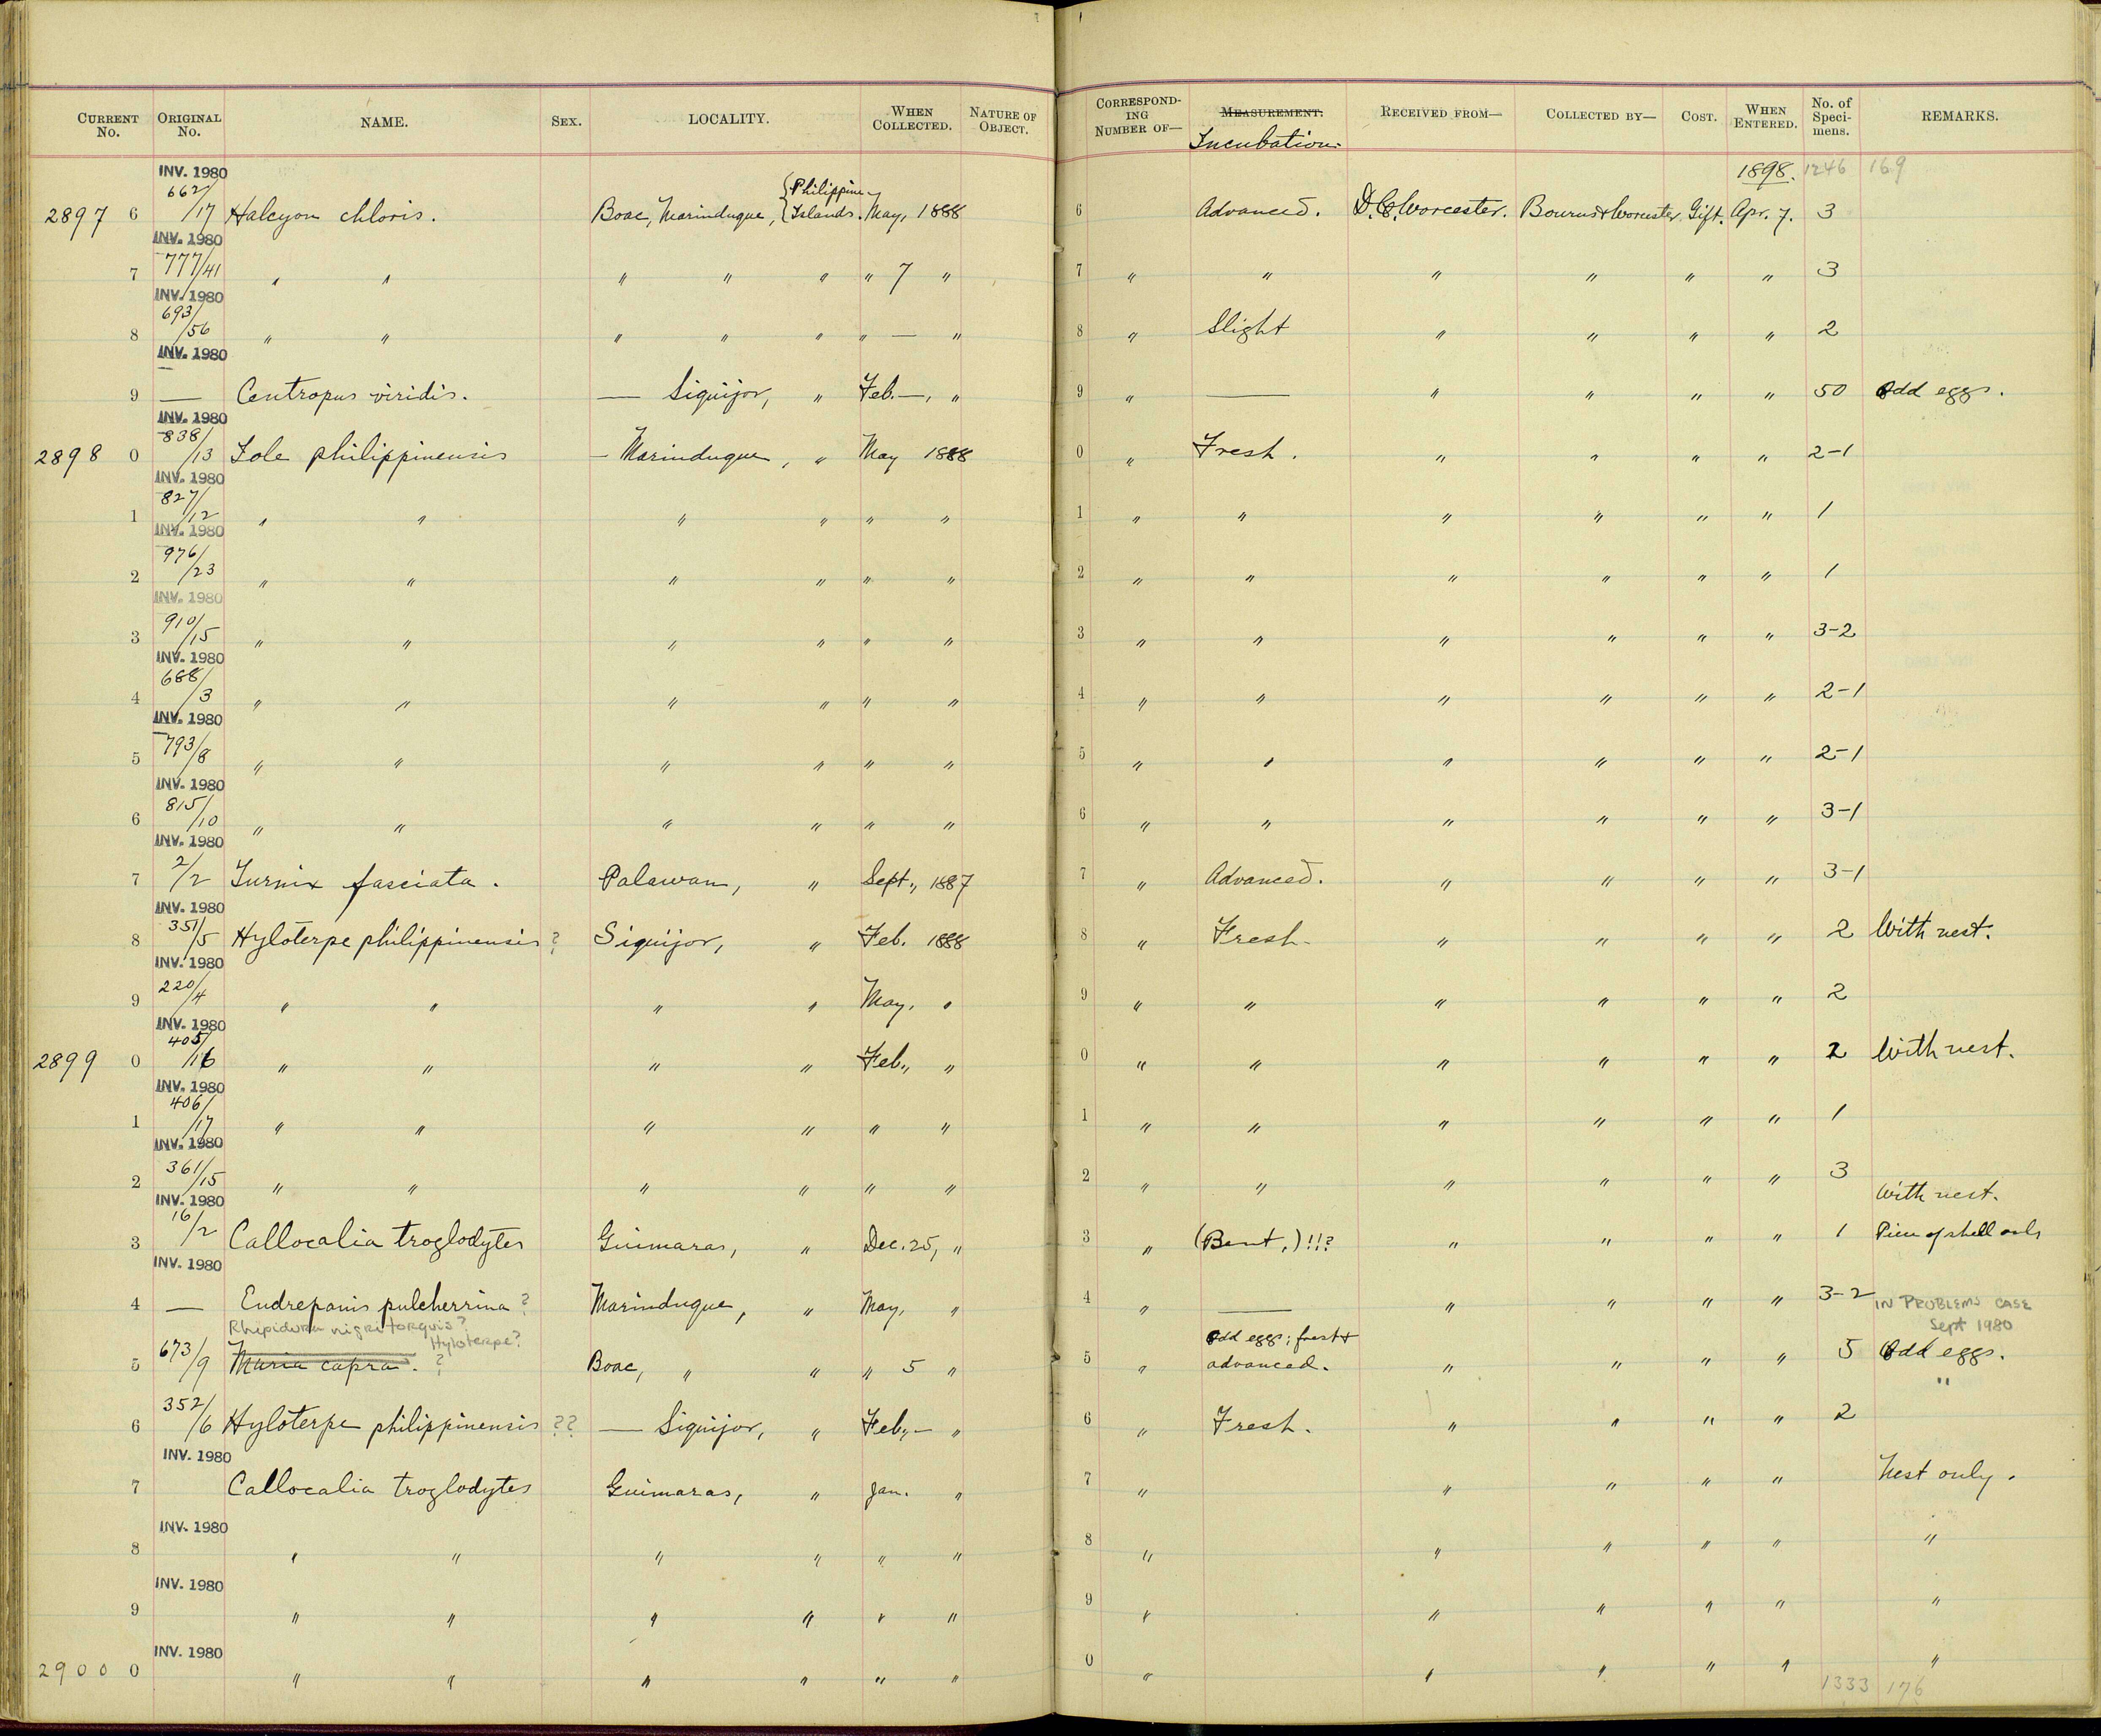 CURRENT No. ORIGINAL No. NAME. SEX. LOCALITY. WHEN COLLECTED. NATURE OF OBJECT. CORRESPONDING NUMBER OF— MEASUREMENT. RECEIVED FROM— COLLECTED BY— COST. WHEN ENTERED. No. of Specimens. REMARKS.
Incubation.
INV. 1980 1898. 1246 169
2897 6 662/17 Halcyon chloris. Boac, Marinduque, {Philippine Islands. May, 1888 6 Advanced. D.C. Worcester. Bourns & Worcester Gift. Apr. 7. 3
INV. 1980
7 777/41 " " " " " " 7 " 7 " " " " " " 3
INV. 1980
8 693/56 " " " " " " — " 8 " Slight " " " " 2
INV. 1980
9 — Centropus viridis. — Siquijor, " Feb. —, " 9 " — " " " " 50 Odd eggs.
INV. 1980
2898 0 838/13 Iole philippinensis — Marinduque, " May 1888 0 " Fresh. " " " " 2-1
INV. 1980
1 827/12 " " " " " " 1 " " " " " " 1
INV. 1980
2 976/23 " " " " " " 2 " " " " " " 1
INV. 1980
3 910/15 " " " " " " 3 " " " " " " 3-2
INV. 1980
4 688/3 " " " " " " 4 " " " " " " 2-1
INV. 1980
5 793/8 " " " " " " 5 " " " " " " 2-1
INV. 1980
6 815/10 " " " " " " 6 " " " " " " 3-1
INV. 1980
7 2/2 Turnix fasciata. Palawan, " Sept., 1887 7 " Advanced. " " " " 3-1
INV. 1980
8 351/5 Hyloterpe philippinensis ? Siquijor, " Feb. 1888 8 " Fresh. " " " " 2 With nest.
INV. 1980
9 220/4 " " " " May, " 9 " " " " " " 2
INV. 1980
2899 0 405/16 " " " " Feb., " 0 " " " " " " 2 With nest.
INV. 1980
1 406/17 " " " " " " 1 " " " " " " 1
INV. 1980
2 361/15 " " " " " " 2 " " " " " " 3 With nest.
INV. 1980
3 16/2 Callocalia troglodytes Guimaras, " Dec. 25, " 3 " (Bent,)!!? " " " " 1 Piece of shell only
INV. 1980
4 — Eudrepanis pulcherrina ? Marinduque, " May, " 4 " — " " " " 3-2 IN PROBLEMS CASE Sept 1980
Rhipidura nigritorquis? Hyloterpe?
5 673/9 Muria capra. ? Boac, " " " 5 " 5 " Odd eggs; fresh & advanced. " " " " 5 Odd eggs.
"
6 352/6 Hyloterpe philippinensis ?? — Siquijor, " Feb., — " 6 " Fresh. " " " " 2
INV. 1980
7 Callocalia troglodytes Guimaras, " Jan. " 7 " " " " " Nest only.
INV. 1980
8 " " " " " " 8 " " " " " "
INV. 1980
9 " " " " " " 9 " " " " " "
INV. 1980
2900 0 " " " " " " 0 " " " " " "
1333 176